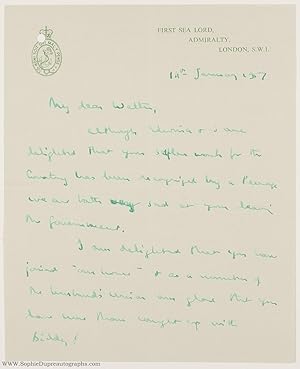 FIRST SEA LORD,
ADMIRALTY,
LONDON, S.W.1.
14th January 1957
My dear Walter,
Although Edwina & I are
delighted that your selfless work for the
Country has been recognised by a Peerage
we are both very sad at your leaving
the Government.
I am delighted that you have
joined "our House" & as a member of
the husband's union am glad that you
have now than caught up with
Biddy!
www.SophieDupreautographs.com